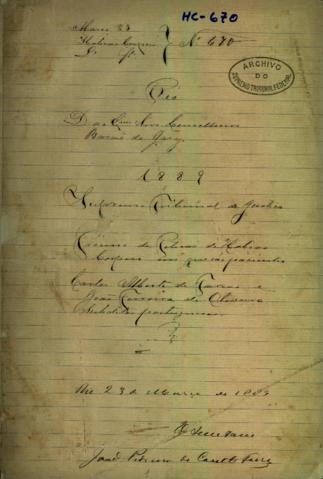 HC-670
Março 23
Habeas Corpus
Nº 670
ARCHIVO
DO
SUPREMO TRIBUNAL FEDERAL
Rio
Barão de
1889
Supremo Tribunal de Justiça
de Habeas
Corpus em que são pacientes
Carlos Alberto de e
João Ferreira de Oliveira
Subditos portuguezes
23 de Março de 1889
O Secretario
João Pedreira do Couto Ferraz